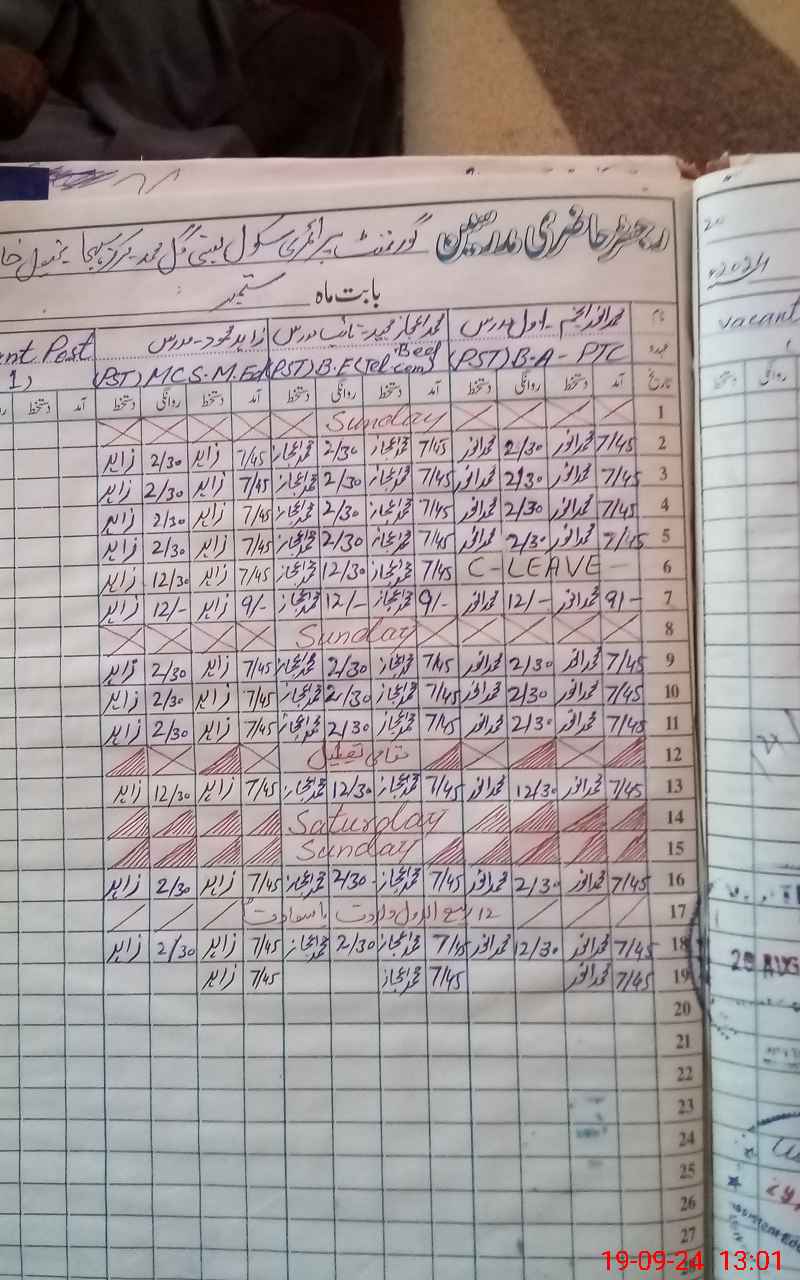 رجسٹر حاضری مدرسین گورنمنٹ پرائمری سکول بستی گل محمد
بابت ماہ ستمبر
نام محمد انور انجم - اول مدرس محمد اعجاز مجید - نائب مدرس زاہد محمود - مدرس
عہدہ (PST) B-A - PTC (PST) B.E (Telecom) Bed (PST) MCS-M.Ed nt Post
1)
تاریخ آمد دستخط روانگی دستخط آمد دستخط روانگی دستخط آمد دستخط روانگی دستخط آمد دستخط
1 Sunday
2 7/45 محمد انور 2/30 محمد انور 7/45 محمد اعجاز 2/30 محمد اعجاز 7/45 زاہد 2/30 زاہد
3 7/45 محمد انور 2/30 محمد انور 7/45 محمد اعجاز 2/30 محمد اعجاز 7/45 زاہد 2/30 زاہد
4 7/45 محمد انور 2/30 محمد انور 7/45 محمد اعجاز 2/30 محمد اعجاز 7/45 زاہد 2/30 زاہد
5 7/45 محمد انور 2/30 محمد انور 7/45 محمد اعجاز 2/30 محمد اعجاز 7/45 زاہد 2/30 زاہد
6 C-LEAVE 7/45 محمد اعجاز 12/30 محمد اعجاز 7/45 زاہد 12/30 زاہد
7 9/- محمد انور 12/- محمد انور 9/- محمد اعجاز 12/- محمد اعجاز 9/- زاہد 12/- زاہد
8 Sunday
9 7/45 محمد انور 2/30 محمد انور 7/45 محمد اعجاز 2/30 محمد اعجاز 7/45 زاہد 2/30 زاہد
10 7/45 محمد انور 2/30 محمد انور 7/45 محمد اعجاز 2/30 محمد اعجاز 7/45 زاہد 2/30 زاہد
11 7/45 محمد انور 2/30 محمد انور 7/45 محمد اعجاز 2/30 محمد اعجاز 7/45 زاہد 2/30 زاہد
12 مقامی تعطیل
13 7/45 محمد انور 12/30 محمد انور 7/45 محمد اعجاز 12/30 محمد اعجاز 7/45 زاہد 12/30 زاہد
14 Saturday
15 Sunday
16 7/45 محمد انور 2/30 محمد انور 7/45 محمد اعجاز 2/30 محمد اعجاز 7/45 زاہد 2/30 زاہد
17 12 ربیع الاول ولادت باسعادت
18 7/45 محمد انور 12/30 محمد انور 7/45 محمد اعجاز 2/30 محمد اعجاز 7/45 زاہد 2/30 زاہد
19 7/45 محمد انور 7/45 محمد اعجاز 7/45 زاہد
20
21
22
23
24
25
26
27
vacant
روانگی دستخط
20 AUG
19-09-24 13:01